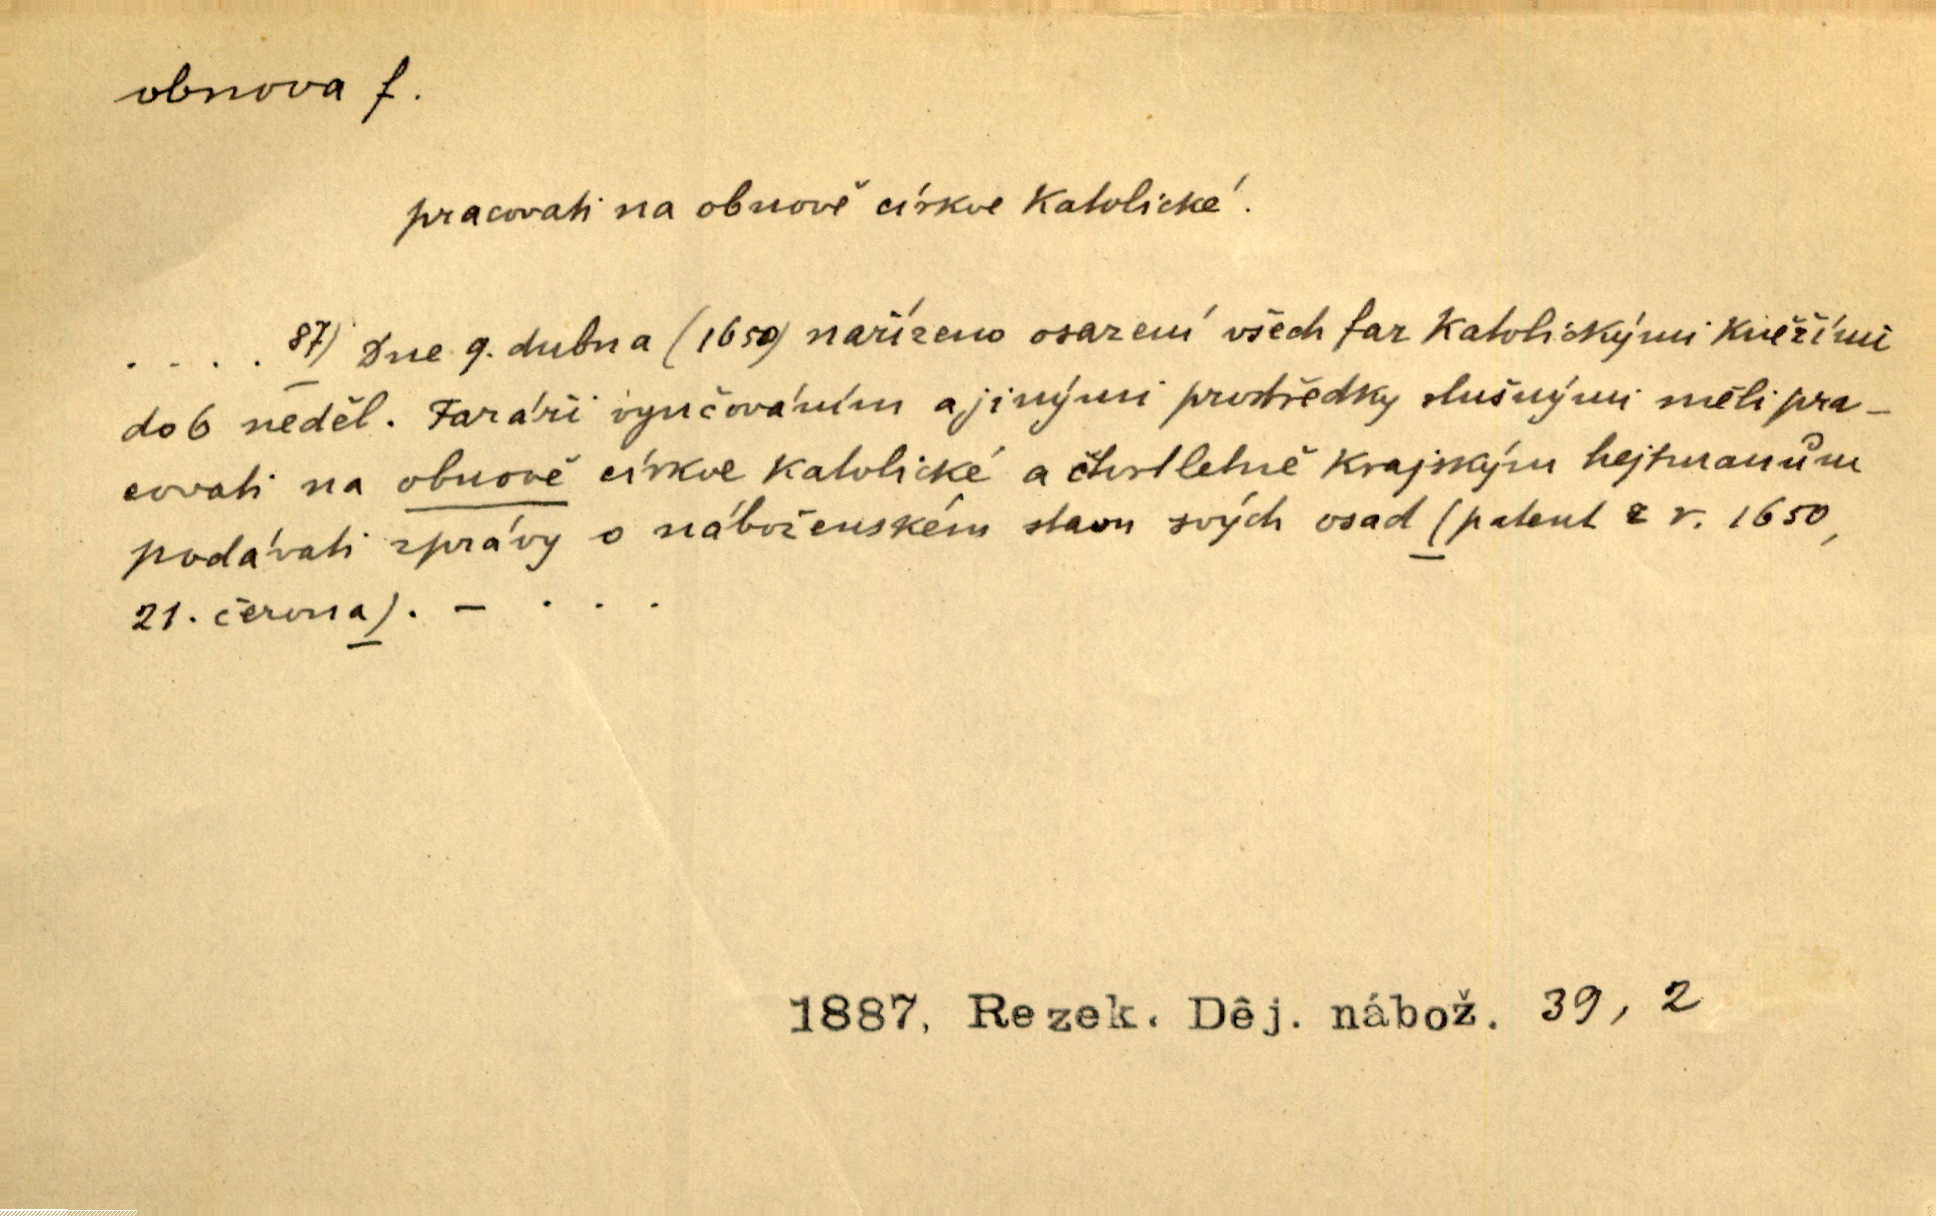 obnova f.
pracovati na obnově církve katolické.
. . . . 87) Dne 9. dubna (1650) nařízeno osazení všech far katolickými kněžími
do 6 neděl. Faráři vyučováním a jinými prostředky slušnými měli pra-
covati na obnově církve katolické a čtvrtletně krajským hejtmanům
podávati zprávy o náboženském stavu svých osad (patent z r. 1650,
21. června). — . . .
1887, Rezek. Děj. nábož. 39, 2